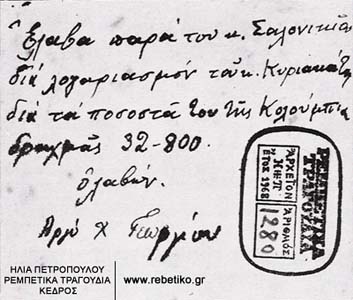 Ἔλαβα παρά του κ. Σαλονικιὸ
διά λογαριασμόν τοῦ κ. Κυριακάτη
διά τά ποσοστά του τῆς Κολούμπια
δραχμάς 32-800.
ὁ λαβών.
Χ Γεωργίου
ΡΕΜΠΕΤΙΚΑ
ΤΡΑΓΟΥΔΙΑ
ΑΡΧΕΙΟΝ
"ΗΠ"
ΕΤΟΣ 1968
ΑΡΙΘΜΟΣ
1280
ΗΛΙΑ ΠΕΤΡΟΠΟΥΛΟΥ
ΡΕΜΠΕΤΙΚΑ ΤΡΑΓΟΥΔΙΑ
ΚΕΔΡΟΣ
www.rebetiko.gr